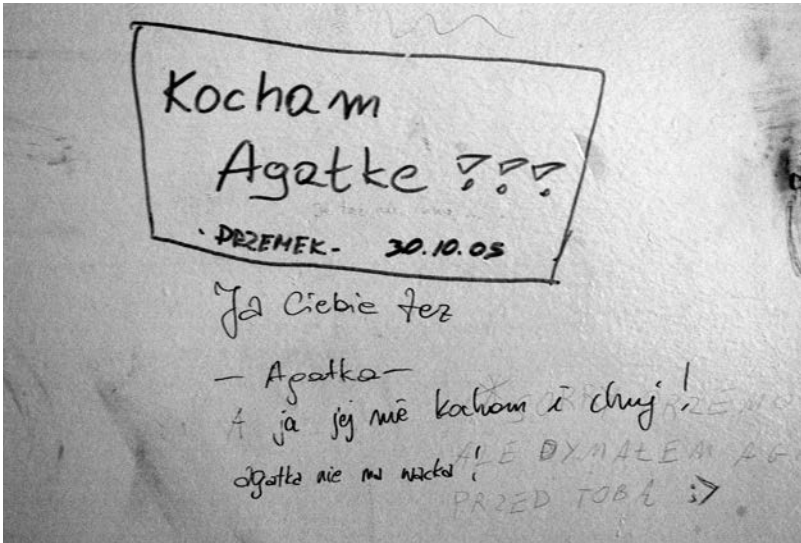 Kocham
Agatke !!!
- PRZEMEK - 30.10.05
Ja Ciebie też
- Agatka -
A ja jej nie kocham i chuj!
agatka nie ma wacka!
ALE DYMAŁEM AG
PRZED TOBĄ ;>